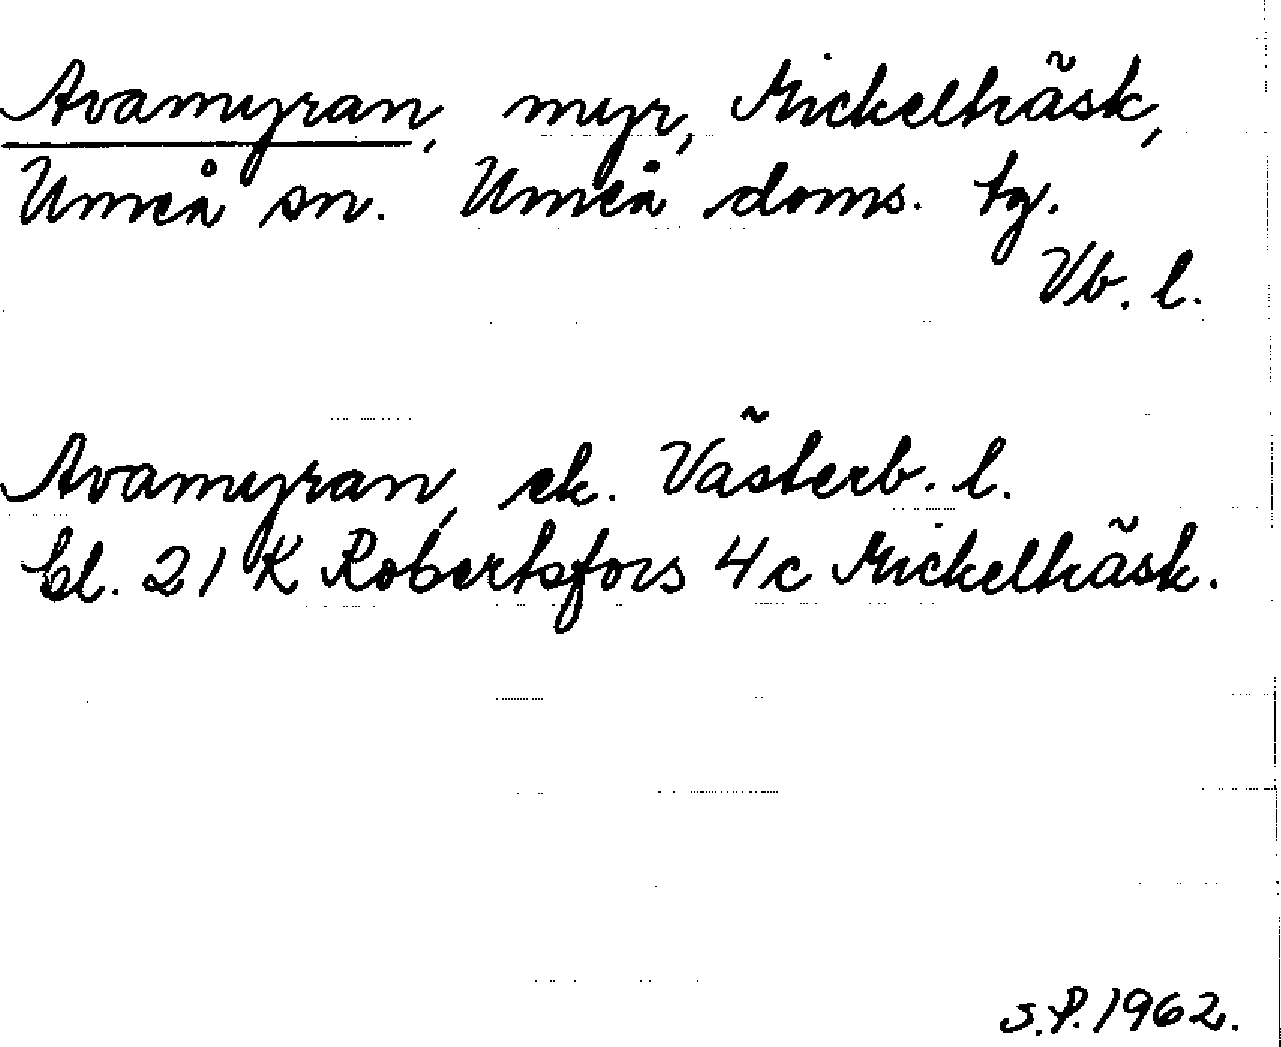 Avamyran, myr, Mickelträsk,
Umeå sn. Umeå doms. tg.
Vb. l.
Avamyran, ek. Västerb. l.
bl. 21 K Robertsfors 4 c Mickelträsk.
S.P. 1962.